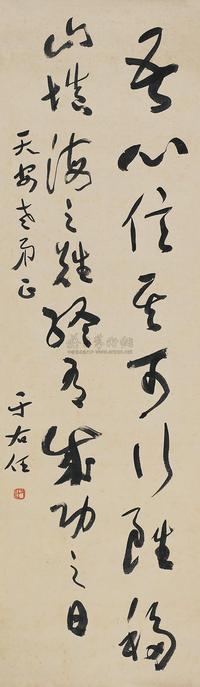 吾心信其可行雖移
山填海之難終有成功之日
天安老弟正
于右任